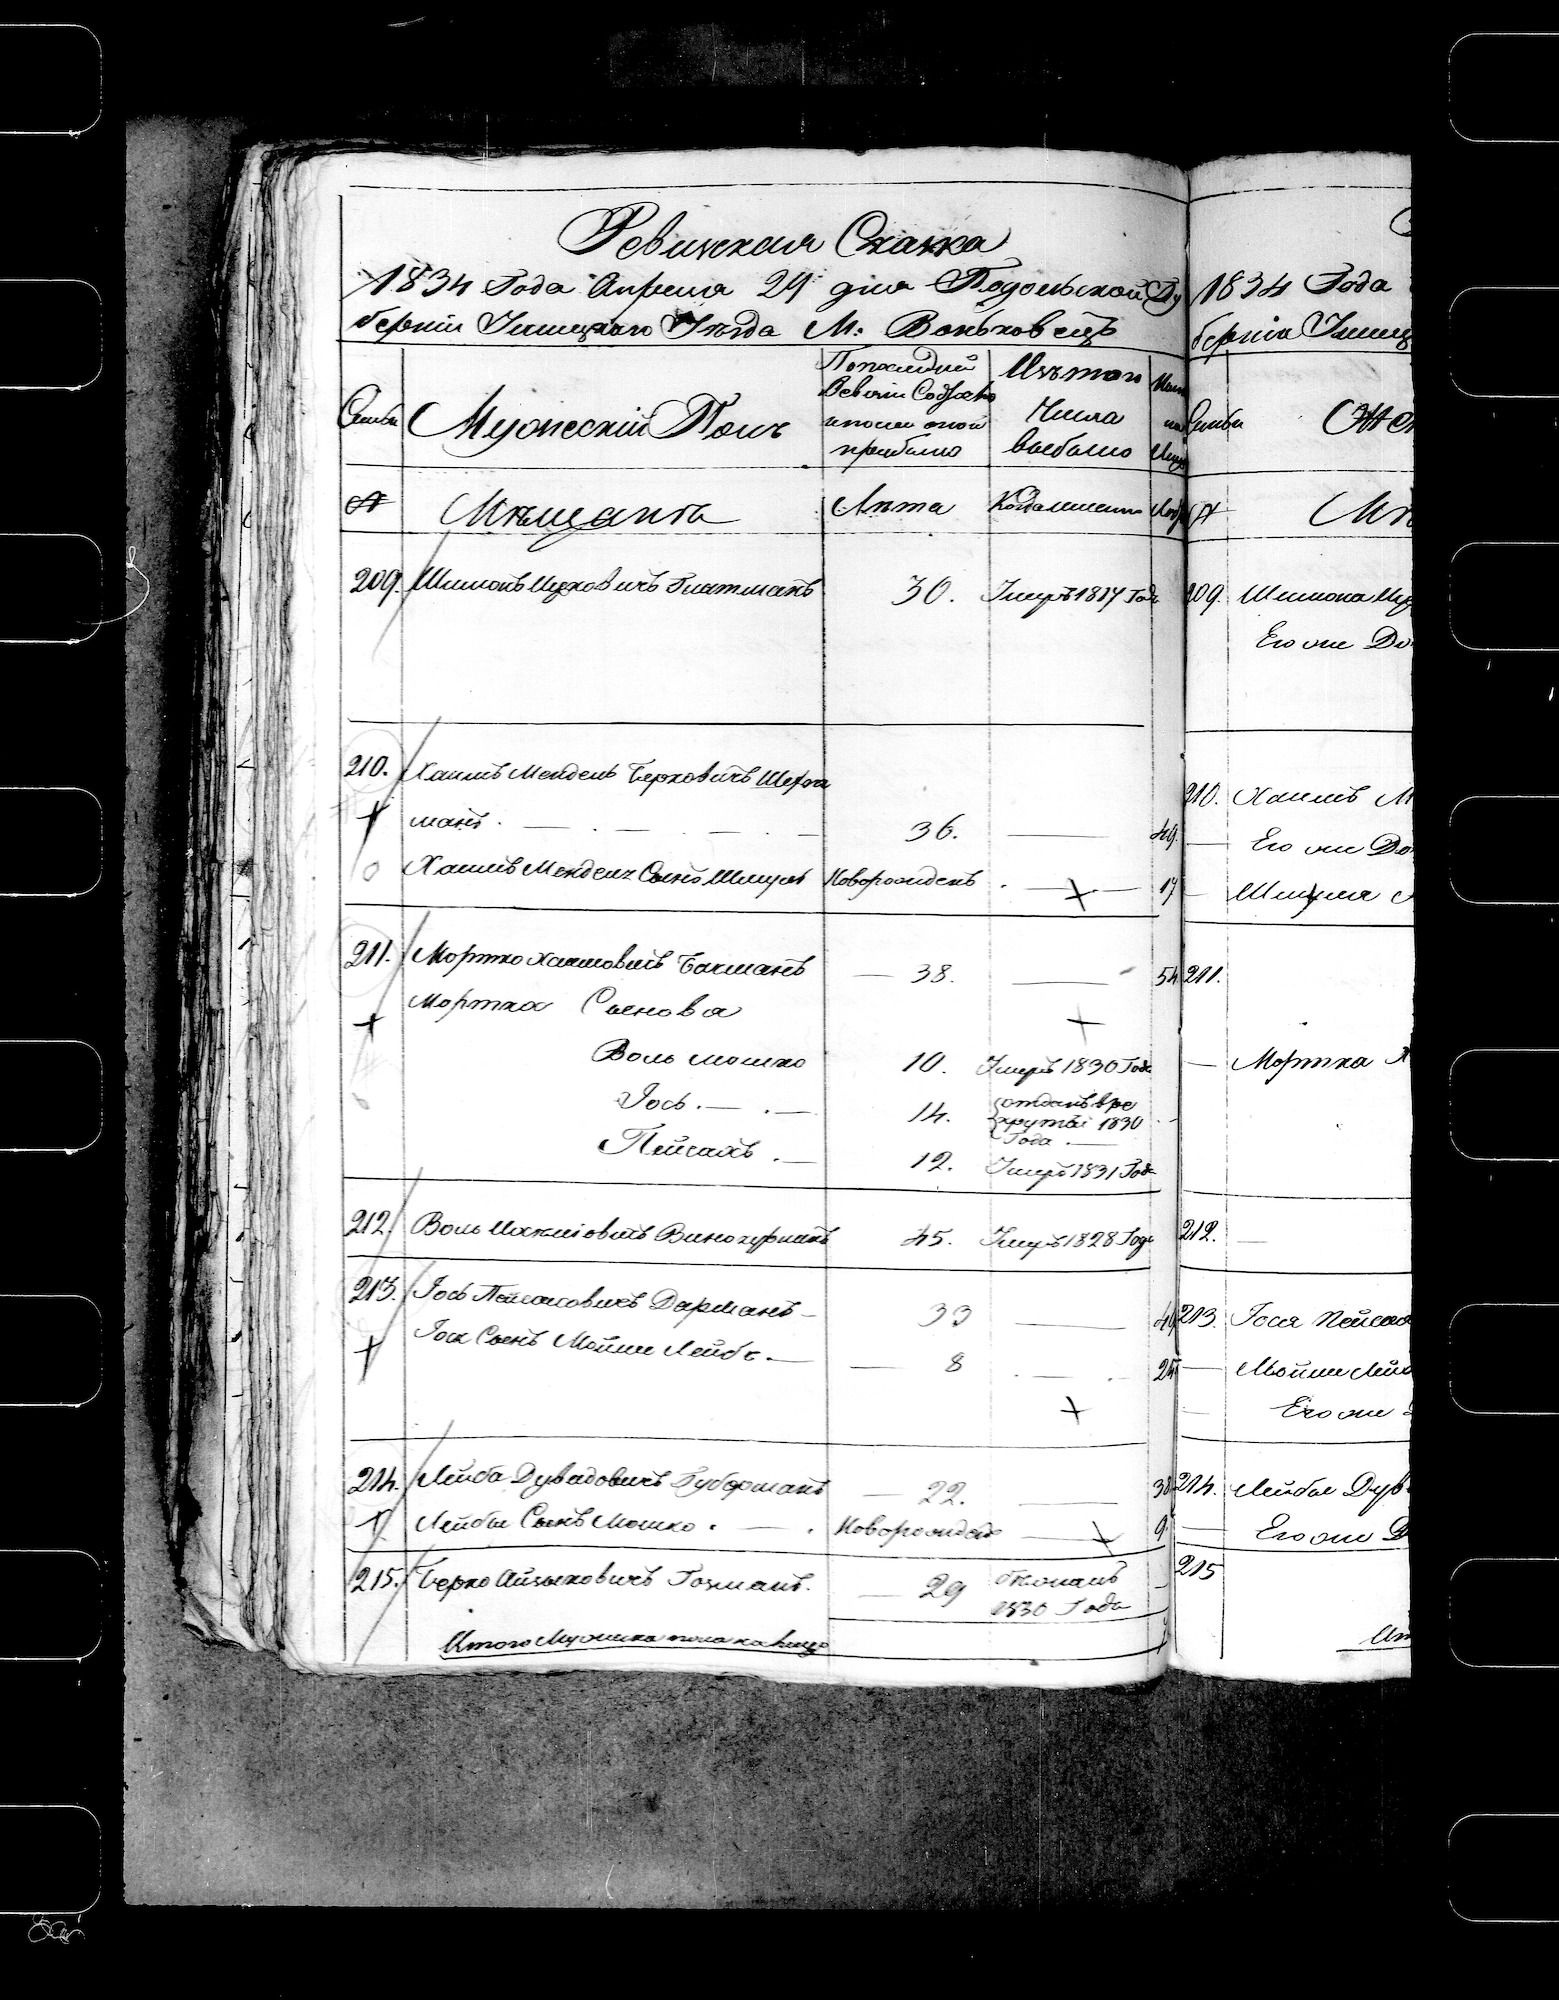 Ревизская Сказка
1834 Года Апреля 29 дня Подольской Гу
берніи Ушицкаго Уезда М. Воньковецъ
Семьи
Мужескій Полъ
Последней
Ревизіи Состояло
и после оной
прибыло
Изъ того
Числа
выбыло
№
Мещанъ
Лета
Когда именно
209. Шимонъ Ицковичъ Глатманъ 30. Умеръ 1817 Года
210. Хаимъ Мендель Берковичъ Шехт
манъ. 36. 49.
Хаимъ Менделя Сынъ Шмуль Новорожденъ 17
211. Мортко Хаимовичъ Бакманъ 38. 54
Мортка Сыновья
Воль Мошко 10. Умеръ 1830 Года
Іось 14. отданъ в ре
круты 1830
Года
Пейсахъ 12. Умеръ 1831 Года
212. Воль Винокурникъ 45. Умеръ 1828 Года
213. Іось Пейсаховичъ Дарманъ 33 49
Іося Сынъ Мойше Лейбъ 8 24
214. Лейба Дувидовичъ Губерманъ 22. 38
Лейбы Сынъ Мошко. Новорожденъ 9.
215. Берко Айзыковичъ Гохманъ. 29
1830 Года
Итого Мужеска пола на лицо
1834 Года
берніи Ушиц
Семьи
Жен
№
209. Шимона Иц
Его же До
210. Хаимъ М
Его же До
Шмуля
211.
Мортка Х
212.
213. Іося Пейсах
Мойши Лейб
Его же
214. Лейбы Дув
Его же Д
215
Ит